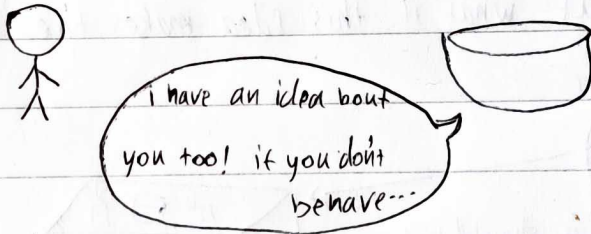 i have an idea bout
you too! if you don't
behave...